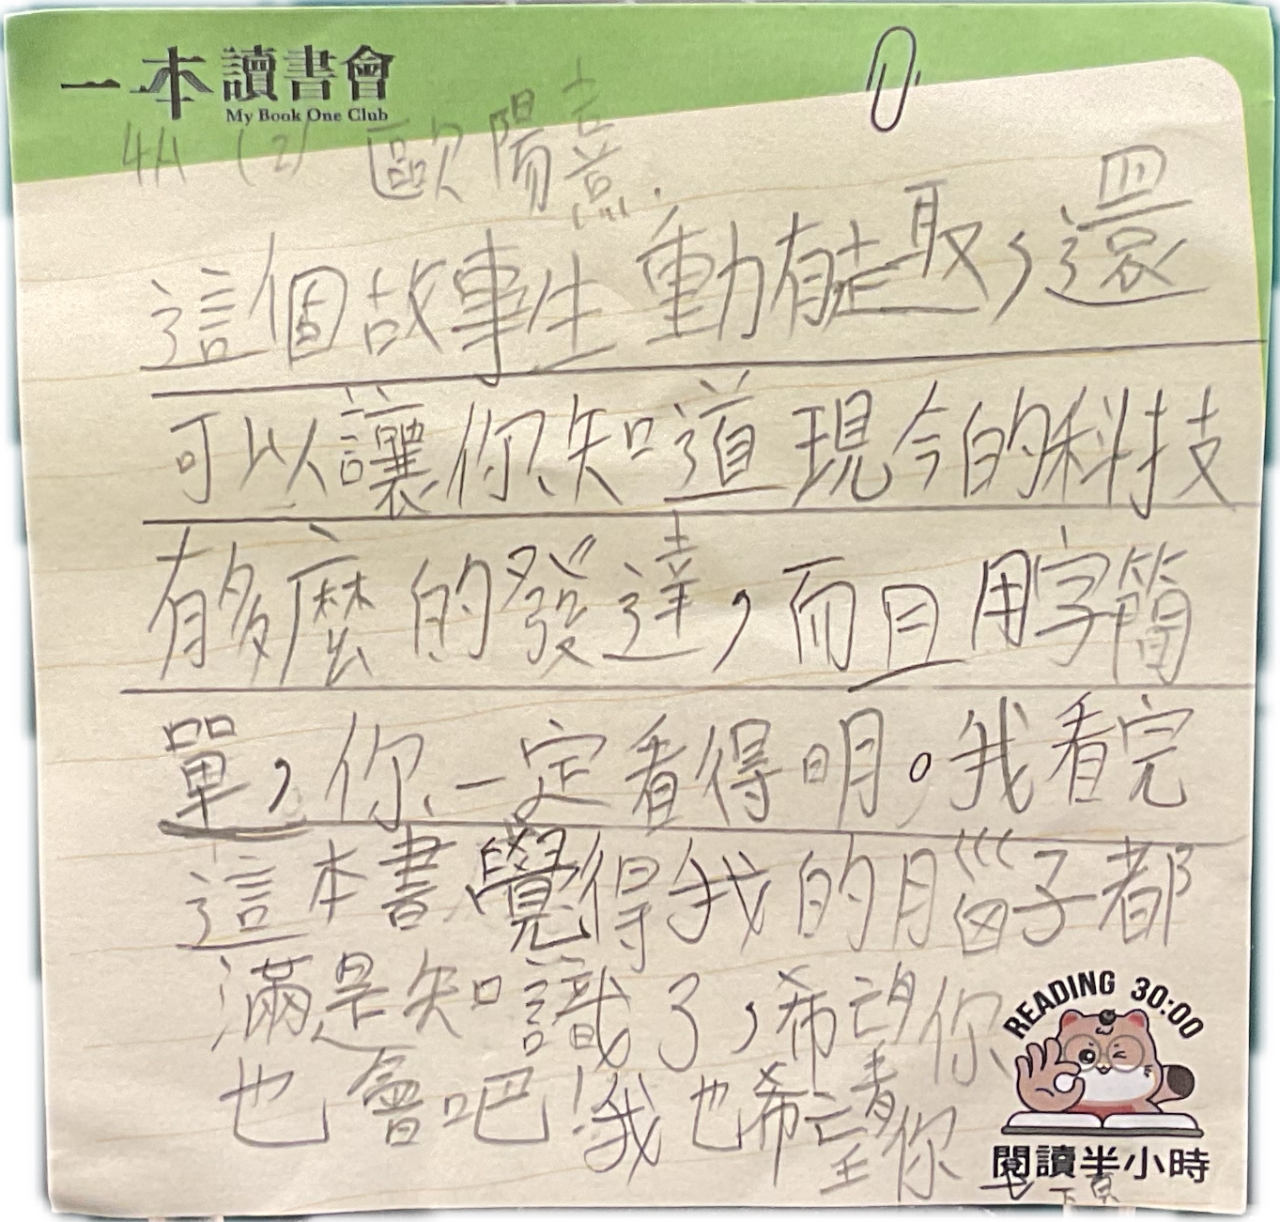 一本讀書會
My Book One Club
4A (2) 歐陽熹
這個故事生動有趣，還
可以讓你知道現今的科技
有多麼的發達，而且用字簡
單，你一定看得明。我看完
這本書覺得我的腦子都
滿是知識了，希望你
也會吧！我也希望你
READING 30:00
閱讀半小時